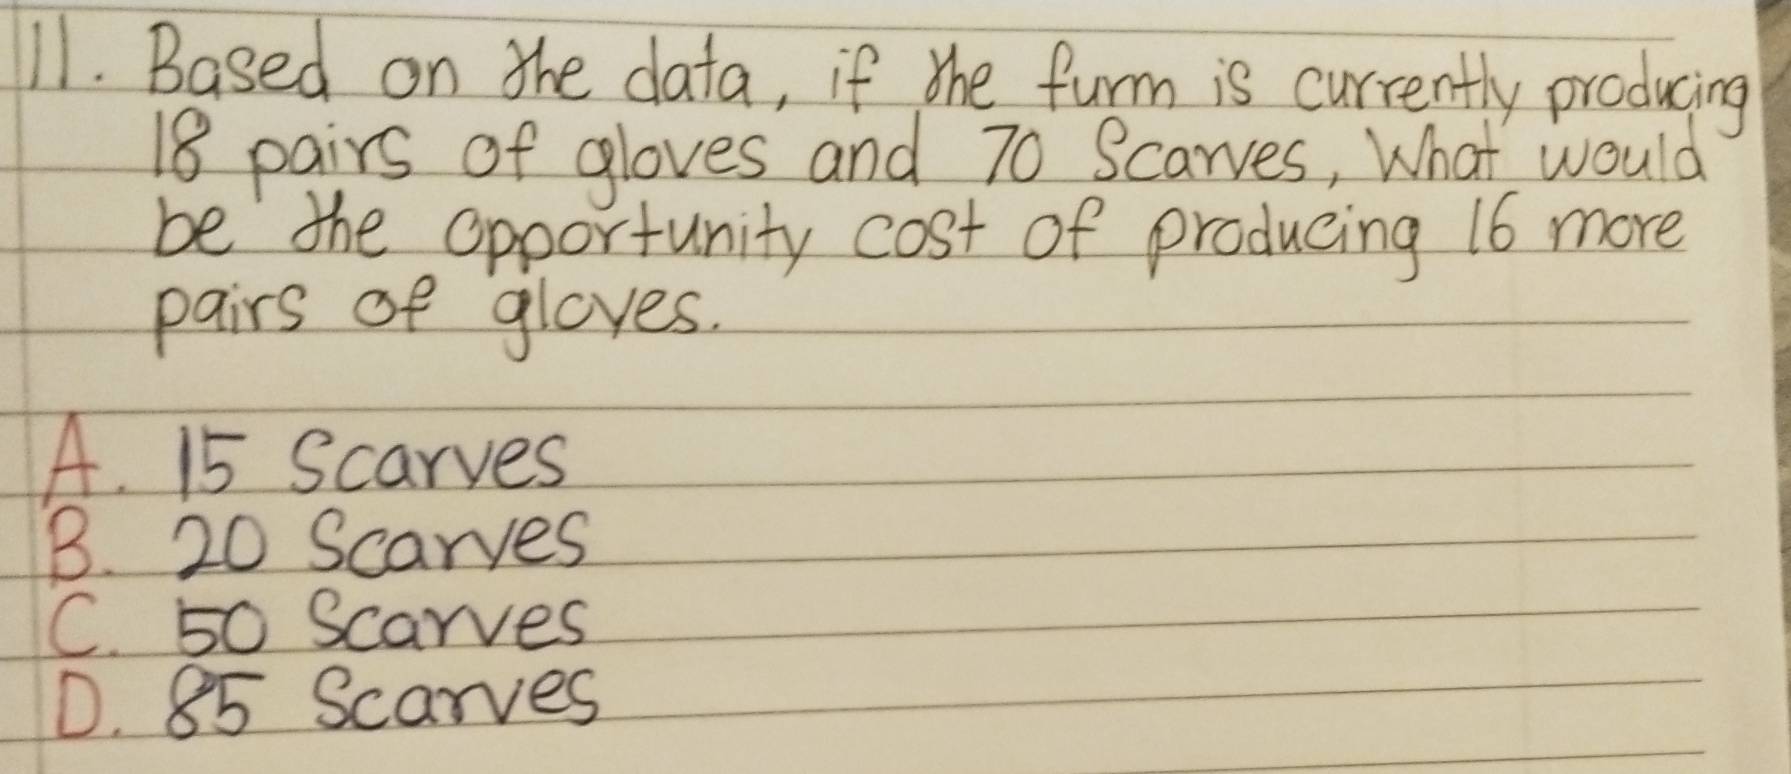 11. Based on the data, if the furm is currently producing
18 pairs of gloves and 70 Scarves, What would
be the opportunity cost of producing 16 more
pairs of gloves.
A. 15 Scarves
B. 20 Scarves
C. 50 Scarves
D. 85 Scarves